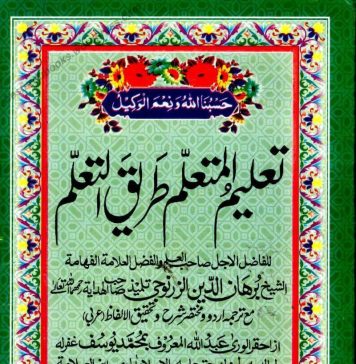 حَسْبُنَا اللّٰهُ وَنِعْمَ الْوَكِيْلُ
تعلیمُ المتعلّم طَریقَ التعلّم
للفاضل الاجل صاحب العلم والفضل العلامة الفهامة
الشیخ برهان الدین الزرنوجی تلمیذ صاحب الهدایة
مع ترجمہ اردو و مختصر شرح و تحقیق الالفاظ (عربی)
از احقر الوریٰ عبد اللہ المعروف محمد یوسف غفرلہ